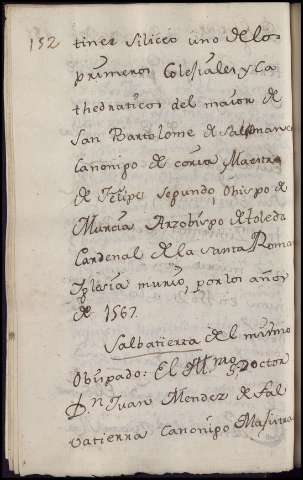 152
tinez Siliceo uno de los
primeros Colesiales y Ca
thedraticos del maior de
San Bartolome de Salamanca
Canonigo de coria, Maestro
de Felipe segundo, Obispo de
Murcia, Arzobispo de toledo
Cardenal de la santa Roma
Iglesia murio, por los años
de 1567.
Salbatierra del mismo
Obispado: El Ill.mo S. Doctor
D.n Juan Mendez de Sal
vatierra Canonigo Majistra